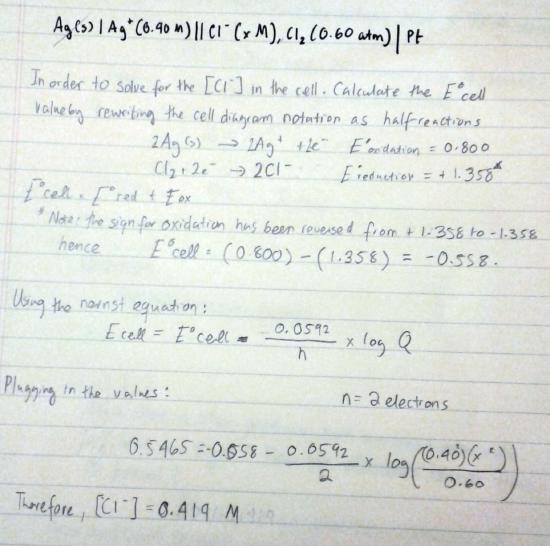 Ag(s) | Ag⁺ (0.40 M) || Cl⁻ (x M), Cl₂ (0.60 atm) | Pt
In order to solve for the [Cl⁻] in the cell. Calculate the E°cell
value by rewriting the cell diagram notation as half-reactions
2Ag(s) → 2Ag⁺ + 2e⁻ E°oxidation = 0.800
Cl₂ + 2e⁻ → 2Cl⁻ E°reduction = + 1.358*
E°cell = E°red + Eox
* Note: the sign for oxidation has been reversed from + 1.358 to -1.358
hence E°cell = (0.800) - (1.358) = -0.558.
Using the nernst equation:
E cell = E°cell - 0.0592 / n x log Q
Plugging in the values: n = 2 electrons
0.5465 = -0.558 - 0.0592 / 2 x log ((0.40)(x²) / 0.60)
Therefore, [Cl⁻] = 0.419 M